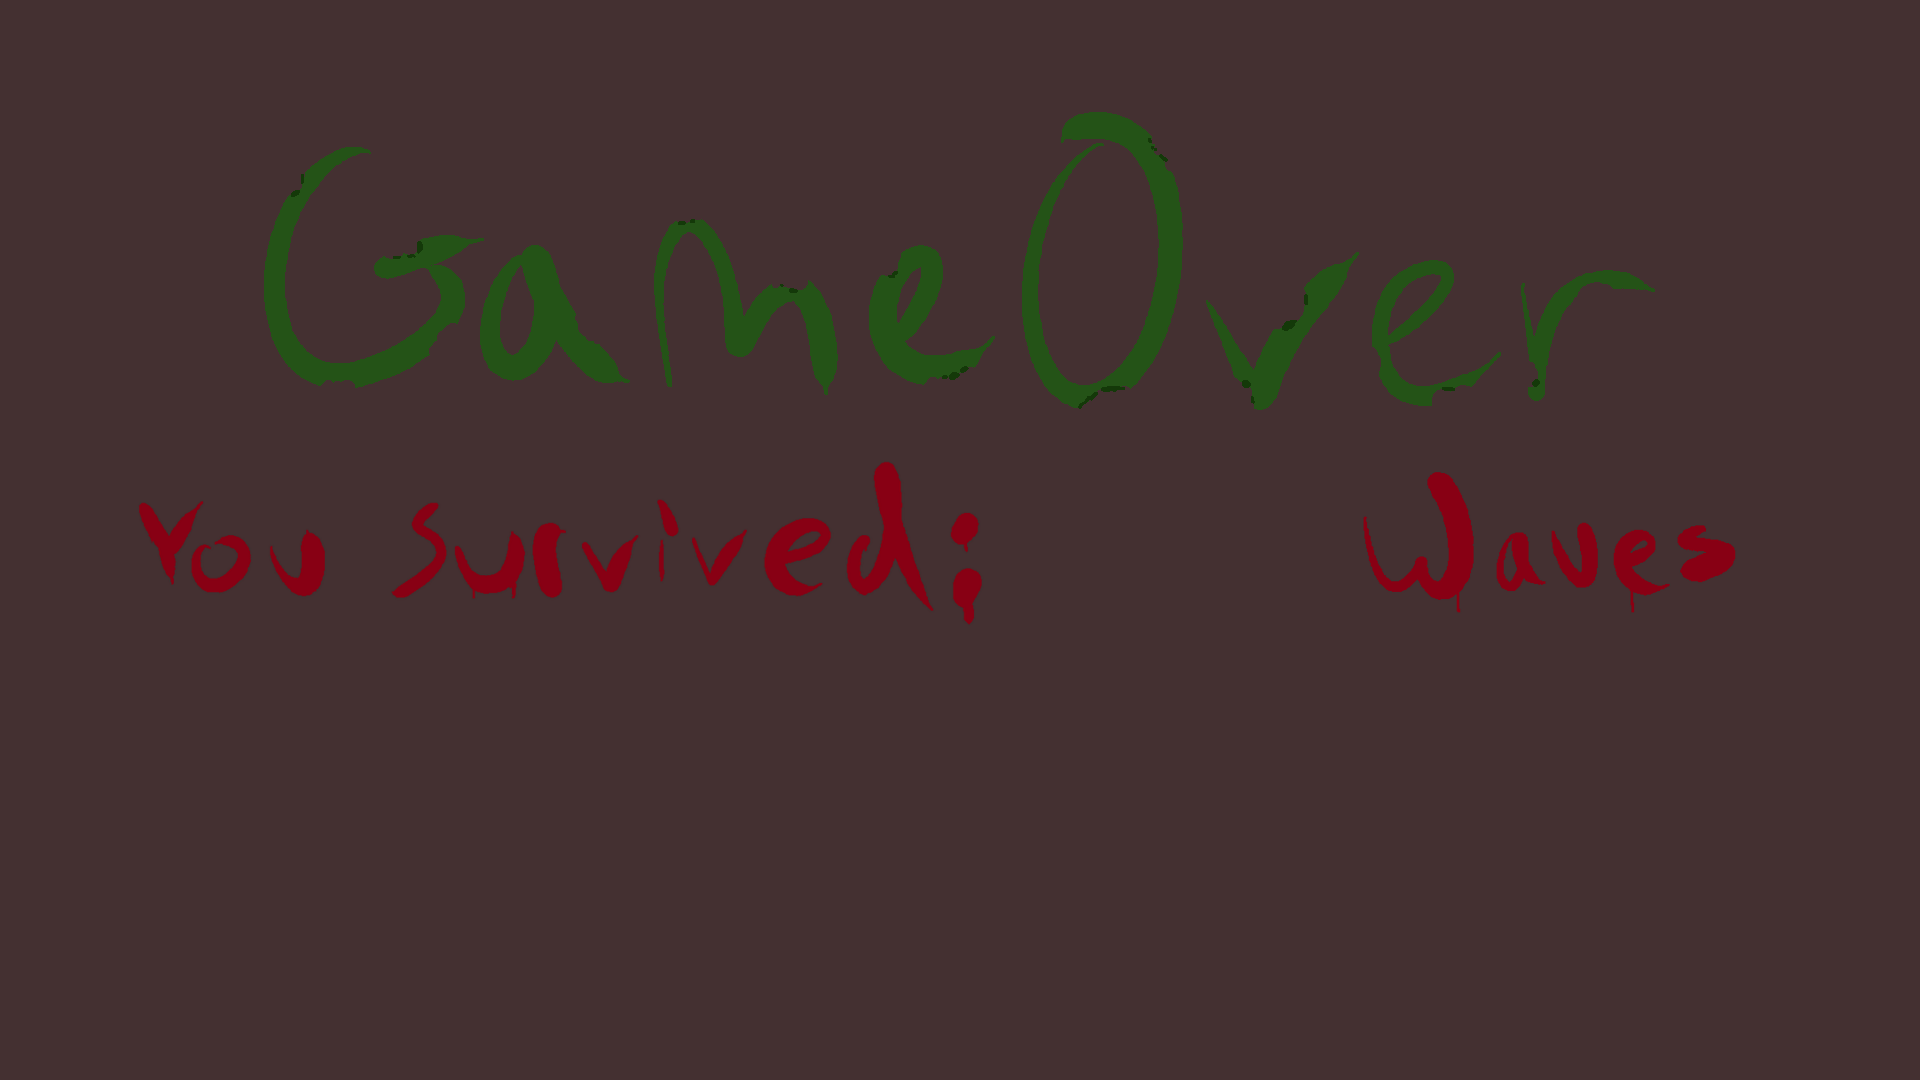 Game Over
You Survived: Waves